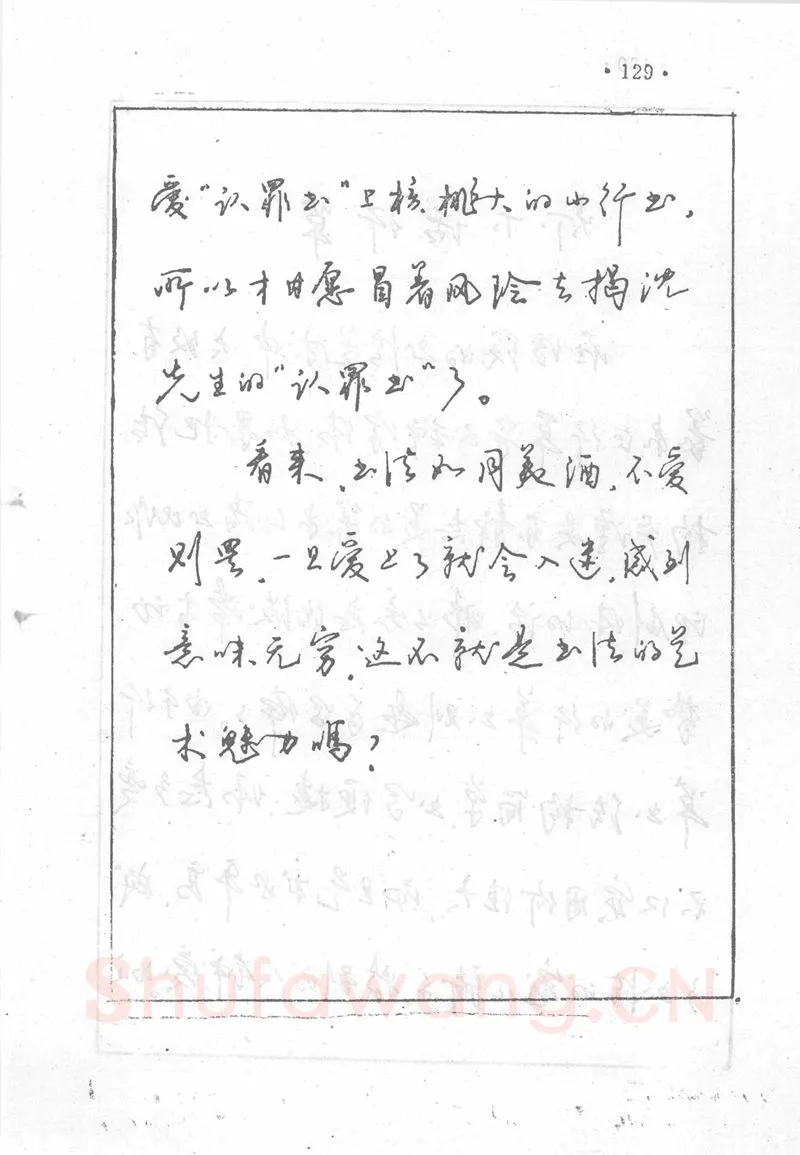 ·129·
爱“认罪书”上核桃大的小行书，
所以才甘愿冒着风险去揭沈
先生的“认罪书”了。
看来，书法如同美酒，不爱
则罢，一旦爱上了就会入迷，感到
意味无穷，这不就是书法的艺
术魅力吗？
Shufawang.CN